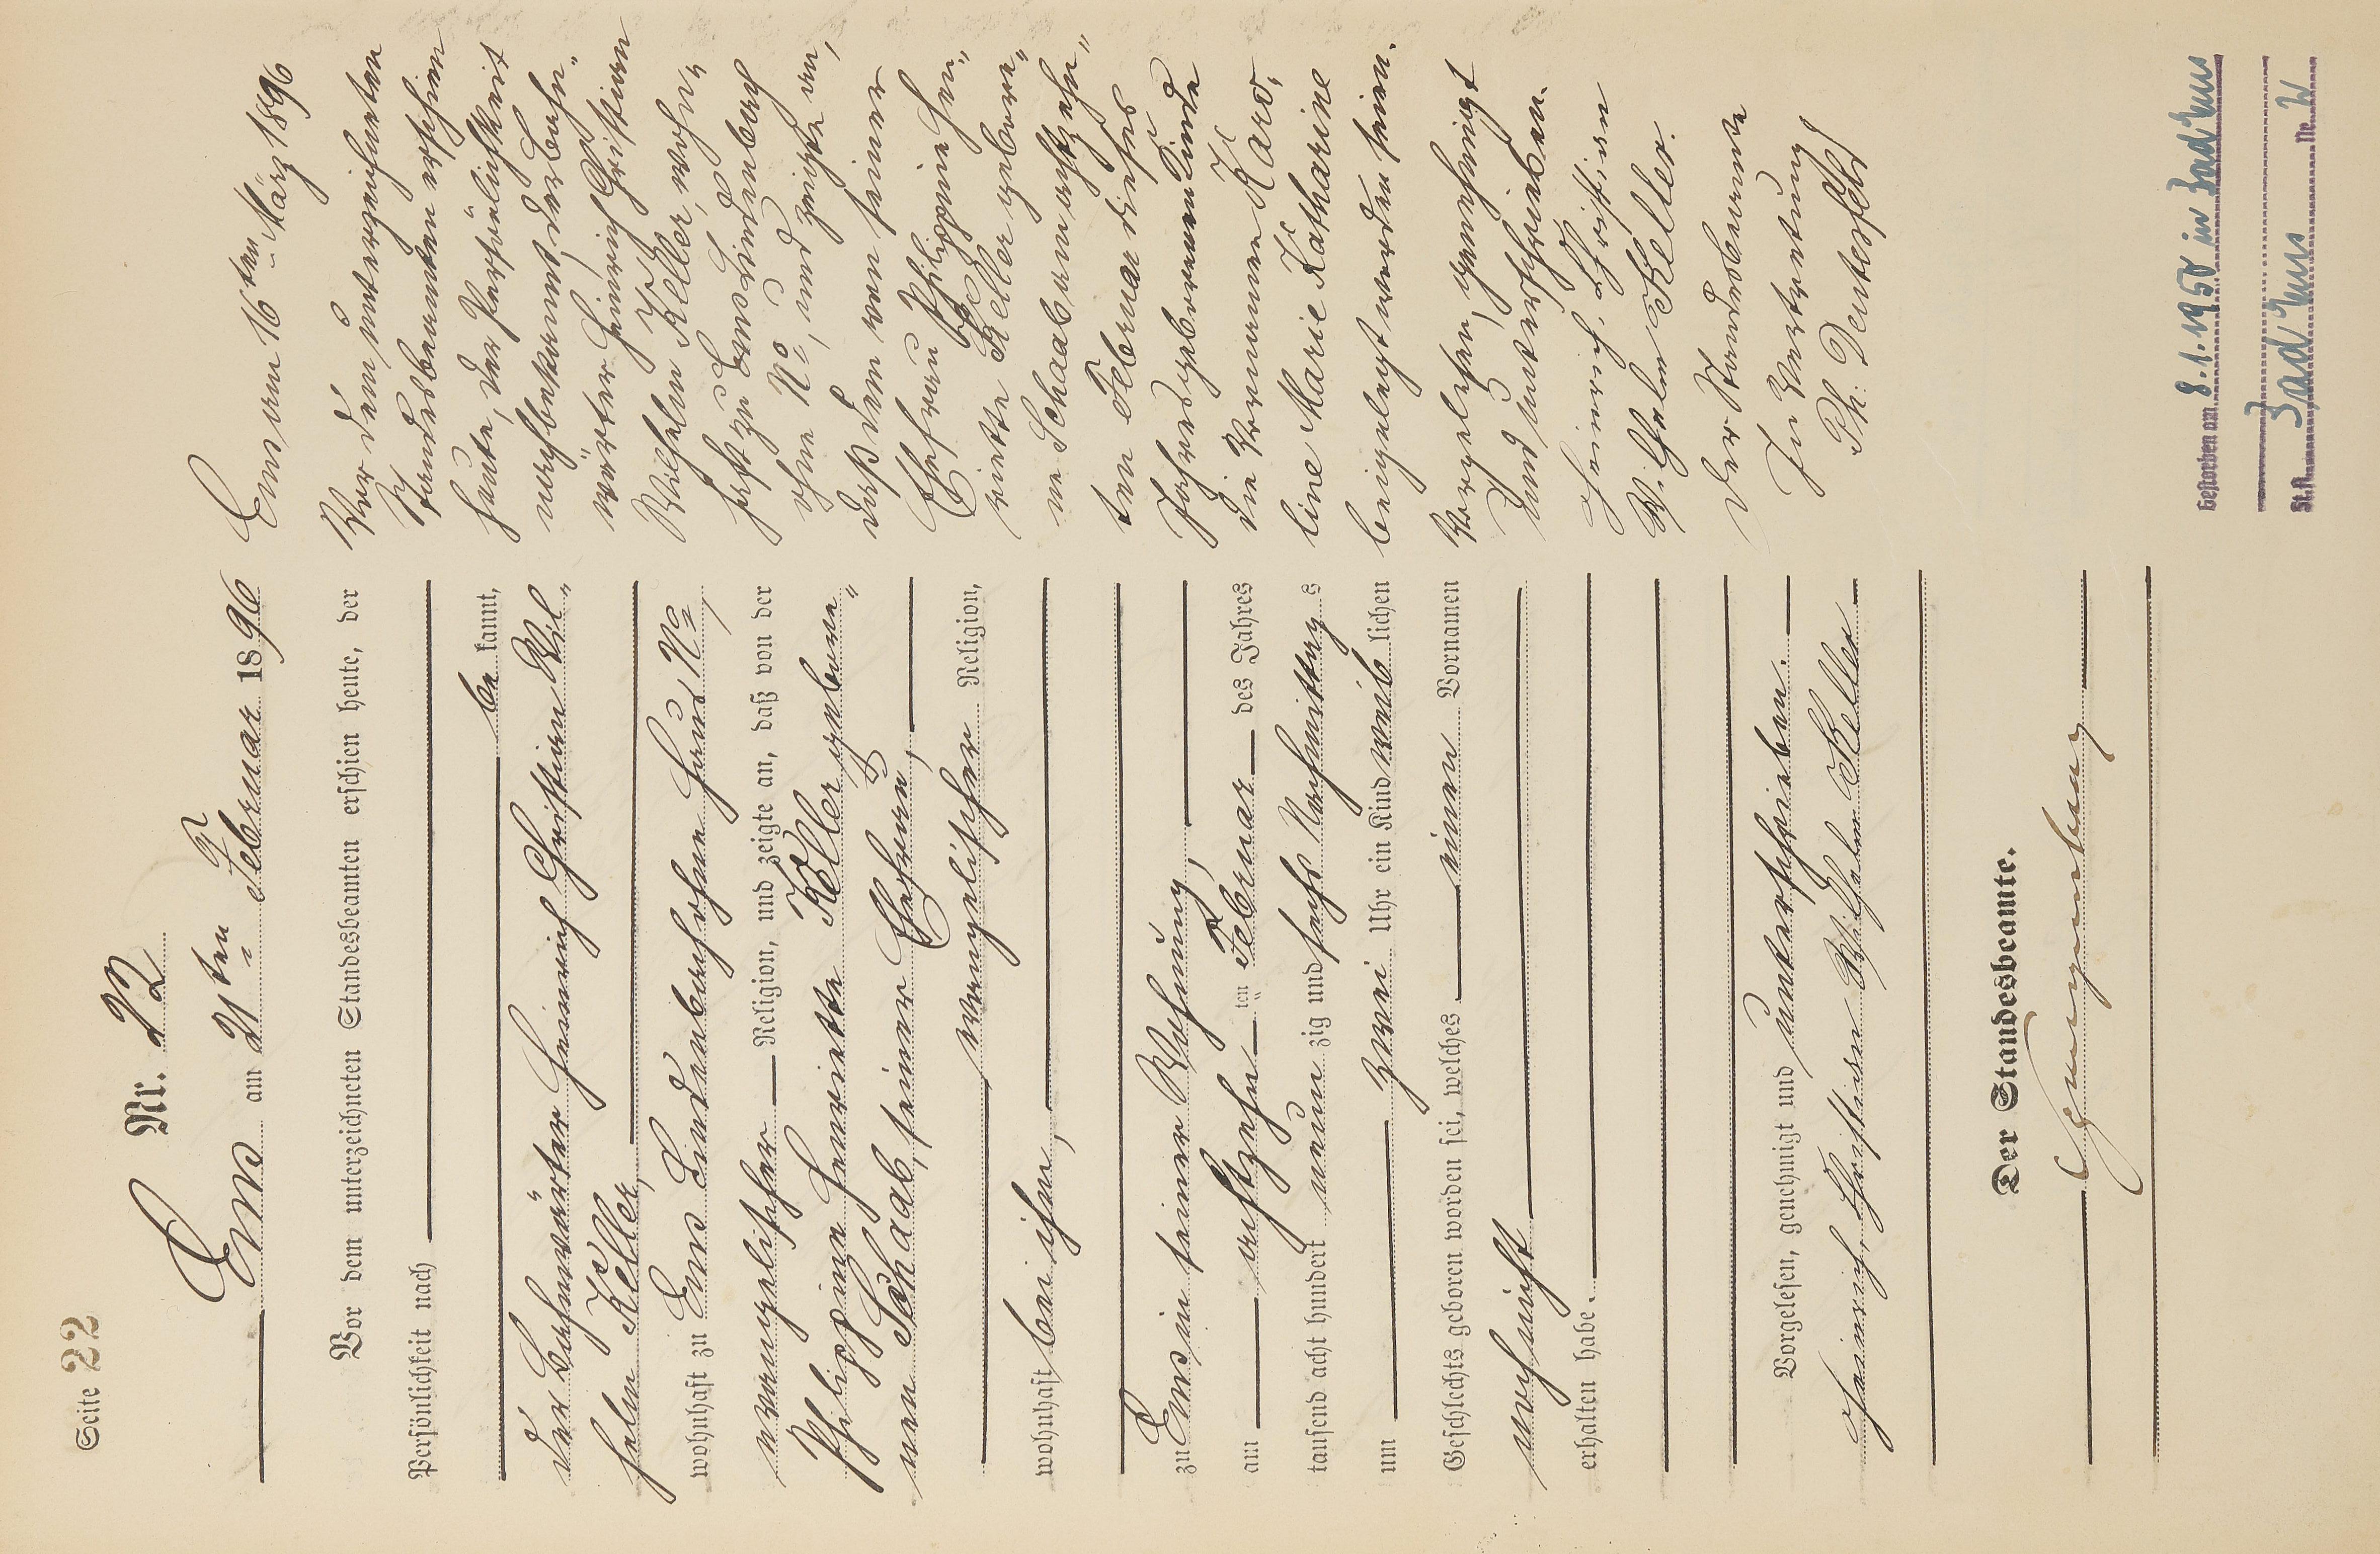 Seite 22
Nr. 22
Ems am 21ten Februar 1896
Vor dem unterzeichneten Standesbeamten erschien heute, der
Persönlichkeit nach
be kannt,
der Bahnwärter Heinrich Christian Wil„
helm Keller,
wohnhaft zu Ems Lindenbach ohne Haus N°,
evangelischer Religion, und zeigte an, daß von der
Philippine Henriette Keller gebore„
nen Schaab, seiner Ehefrau,
evangelischer Religion,
wohnhaft bei ihm,
zu Ems in seiner Wohnung,
am achtzehn ten Februar des Jahres
tausend acht hundert neun zig und sechs Nachmittag s
um zwei Uhr ein Kind weib lichen
Geschlechts geboren worden sei, welches einen Vornamen
noch nicht
erhalten habe.
Vorgelesen, genehmigt und unterschrieben.
Heinrich, Christian Wilhelm Keller
Der Standesbeamte.
Ems am 16ten März 1896
Vor dem unterzeichneten
Standesbeamten erschien
heute, der Persönlichkeit
nach bekannt, der Bahn„
wärter Heinrich Christian
Wilhelm Keller, wohn„
haft zu Ems Lindenbach
ohne N°, und zeigte an,
daß dem von seiner
Ehefrau Philippine Hen„
riette Keller gebore„
ne Schaab am achtzehn„
ten Februar dieses
Jahres geborenen Kinde
die Vornamen Karo„
line Marie Katharine
beigelegt worden seien.
Vorgelesen, genehmigt
und unterschrieben.
Heinrich. Christian
Wilhelm Keller.
Der Standesbeamte
In Vertretung
Ph: Deutesfeld
Gestorben am 8.1.1958 in Bad Ems
St.A. Bad Ems Nr. 2